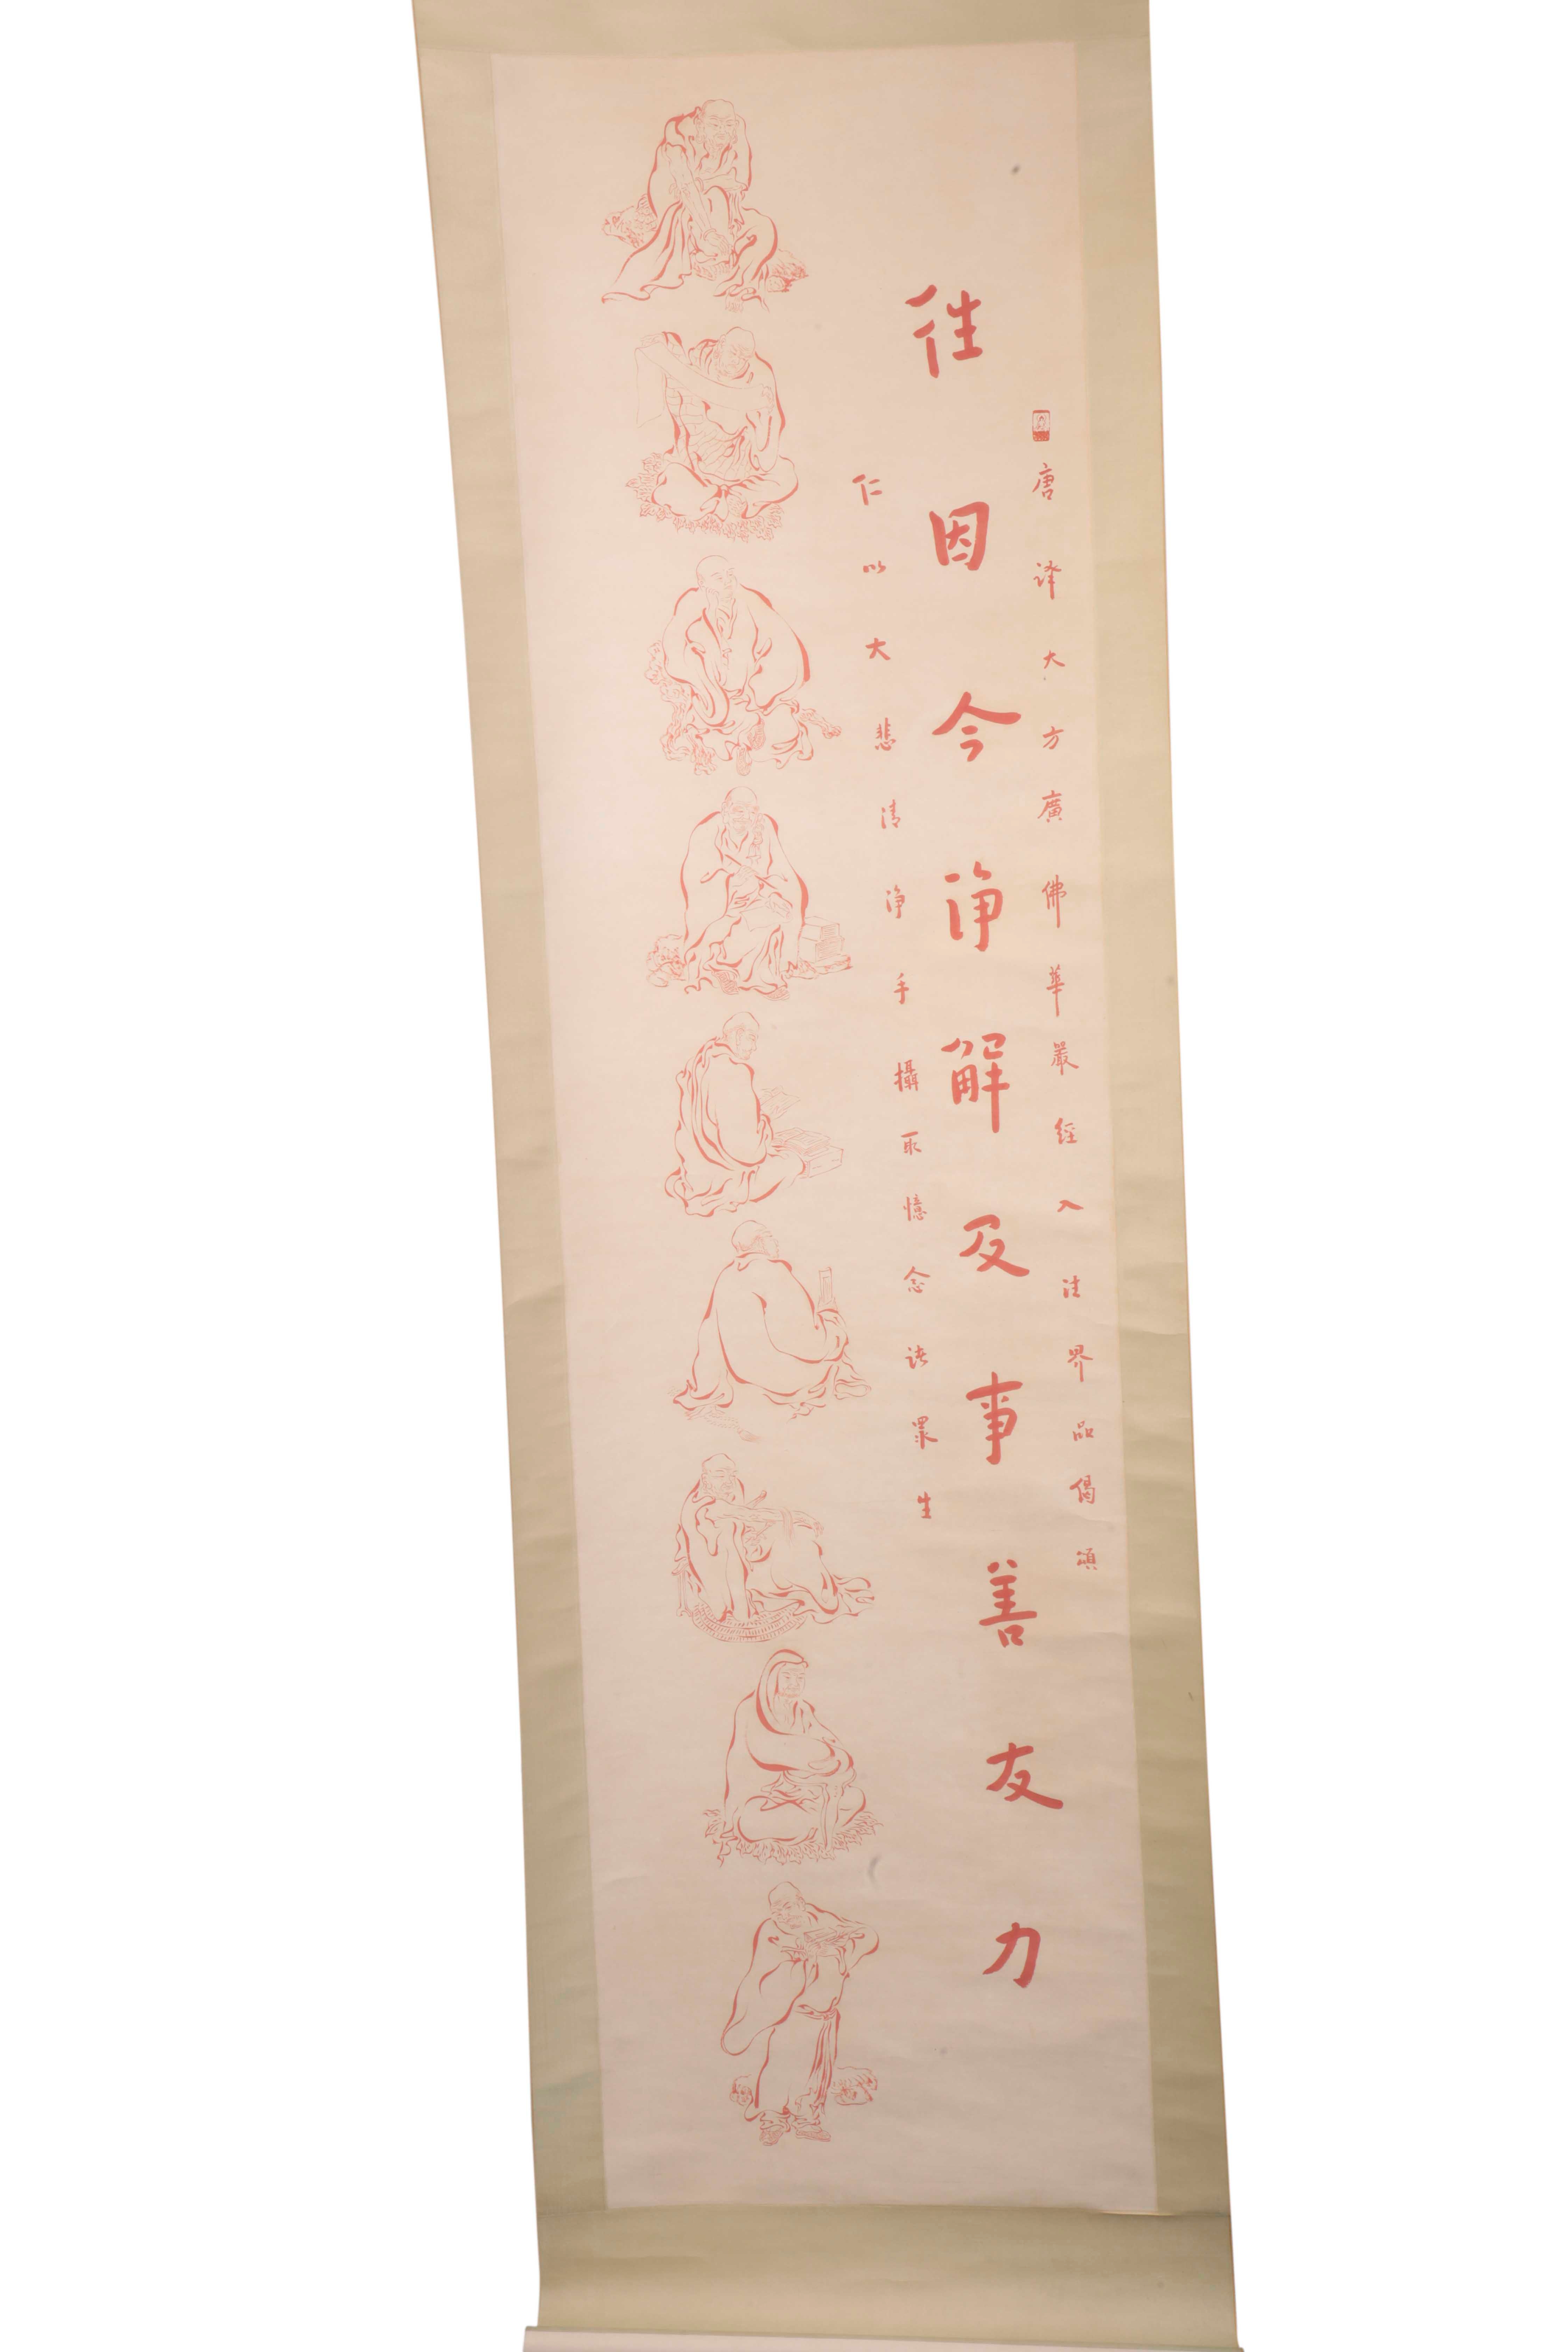 唐譯大方廣佛華嚴經入法界品偈頌
往因今淨解及事善友力
仁以大悲清淨手攝取憶念諸眾生